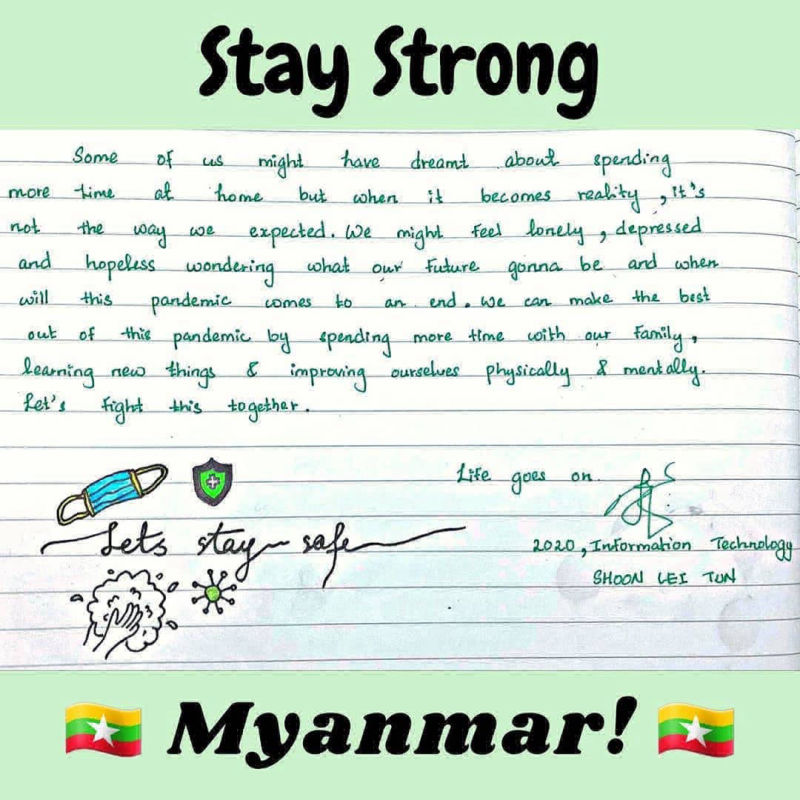 Stay Strong
Some of us might have dreamt about spending
more time at home but when it becomes reality, it's
not the way we expected. We might feel lonely, depressed
and hopeless wondering what our future gonna be and when
will this pandemic comes to an end. We can make the best
out of this pandemic by spending more time with our family,
learning new things & improving ourselves physically & mentally.
Let's fight this together.
Life goes on
Lets stay safe
2020, Information Technology
SHOON LEI TUN
Myanmar!